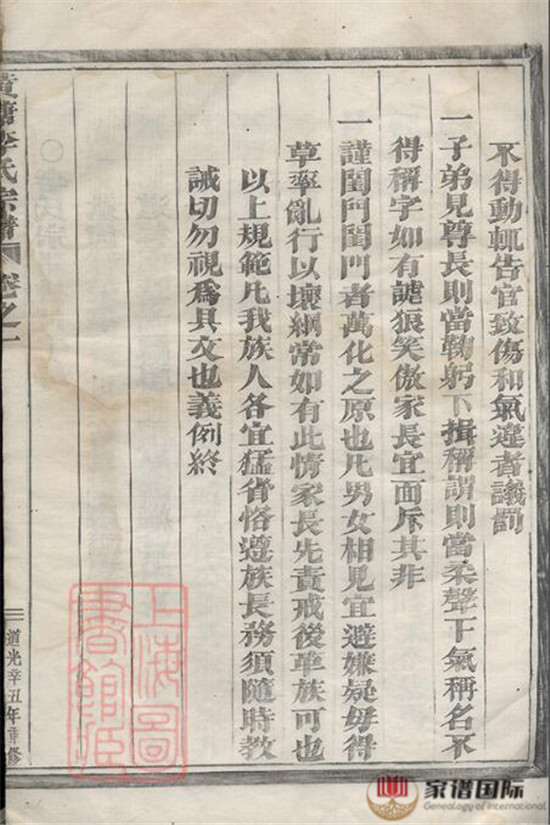 不得動輒告官致傷和氣違者議罰
一子弟見尊長則當鞠躬下揖稱謂則當柔聲下氣稱名不
得稱字如有謔狼笑傲家長宜面斥其非
一謹閨門閨門者萬化之原也凡男女相見宜避嫌疑毋得
草率亂行以壞綱常如有此情家長先責戒後革族可也
以上規範凡我族人各宜猛省恪遵族長務須隨時教
誡切勿視爲具文也義例終
李氏宗譜 卷之一
道光辛丑年重修
上海圖
書館藏
家谱国际
Genealogy of International